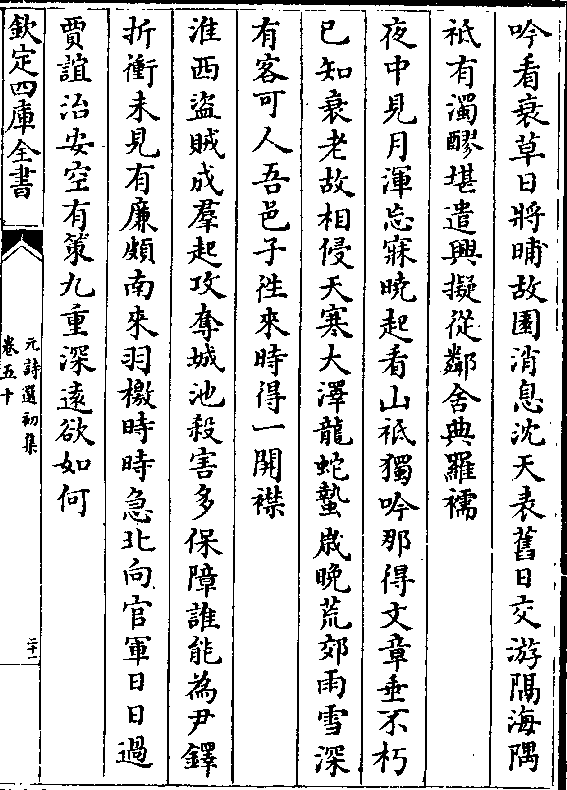 吟看衰草日將晡故園消息沈天表舊日交游隔海隅
祗有濁醪堪遣興擬從鄰舍典羅襦
夜中見月渾忘寐曉起看山祗獨吟那得文章垂不朽
已知衰老故相侵天寒大澤龍蛇蟄歲晚荒郊雨雪深
有客可人吾邑子往來時得一開襟
淮西盜賊成羣起攻奪城池殺害多保障誰能為尹鐸
折衝未見有廉頗南來羽檄時時急北向官軍日日過
賈誼治安空有策九重深遠欲如何
欽定四庫全書
元詩選初集
卷五十
二十一